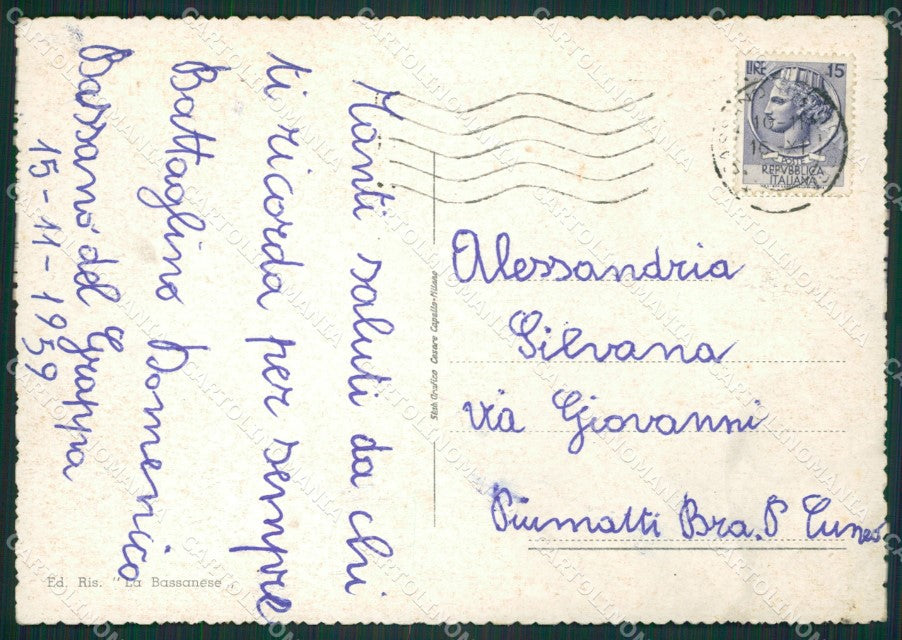 Tanti saluti da chi
ti ricorda per sempre
Battaglino Domenico
Bassano del Grappa
15-11-1959
LIRE 15
POSTE
REPVBBLICA
ITALIANA
Alessandria
Silvana
via Giovanni
Piumatti Bra. P Cuneo
Stab. Grafico Cesare Capello-Milano
Ed. Ris. "La Bassanese"
CARTOLINOMANIA